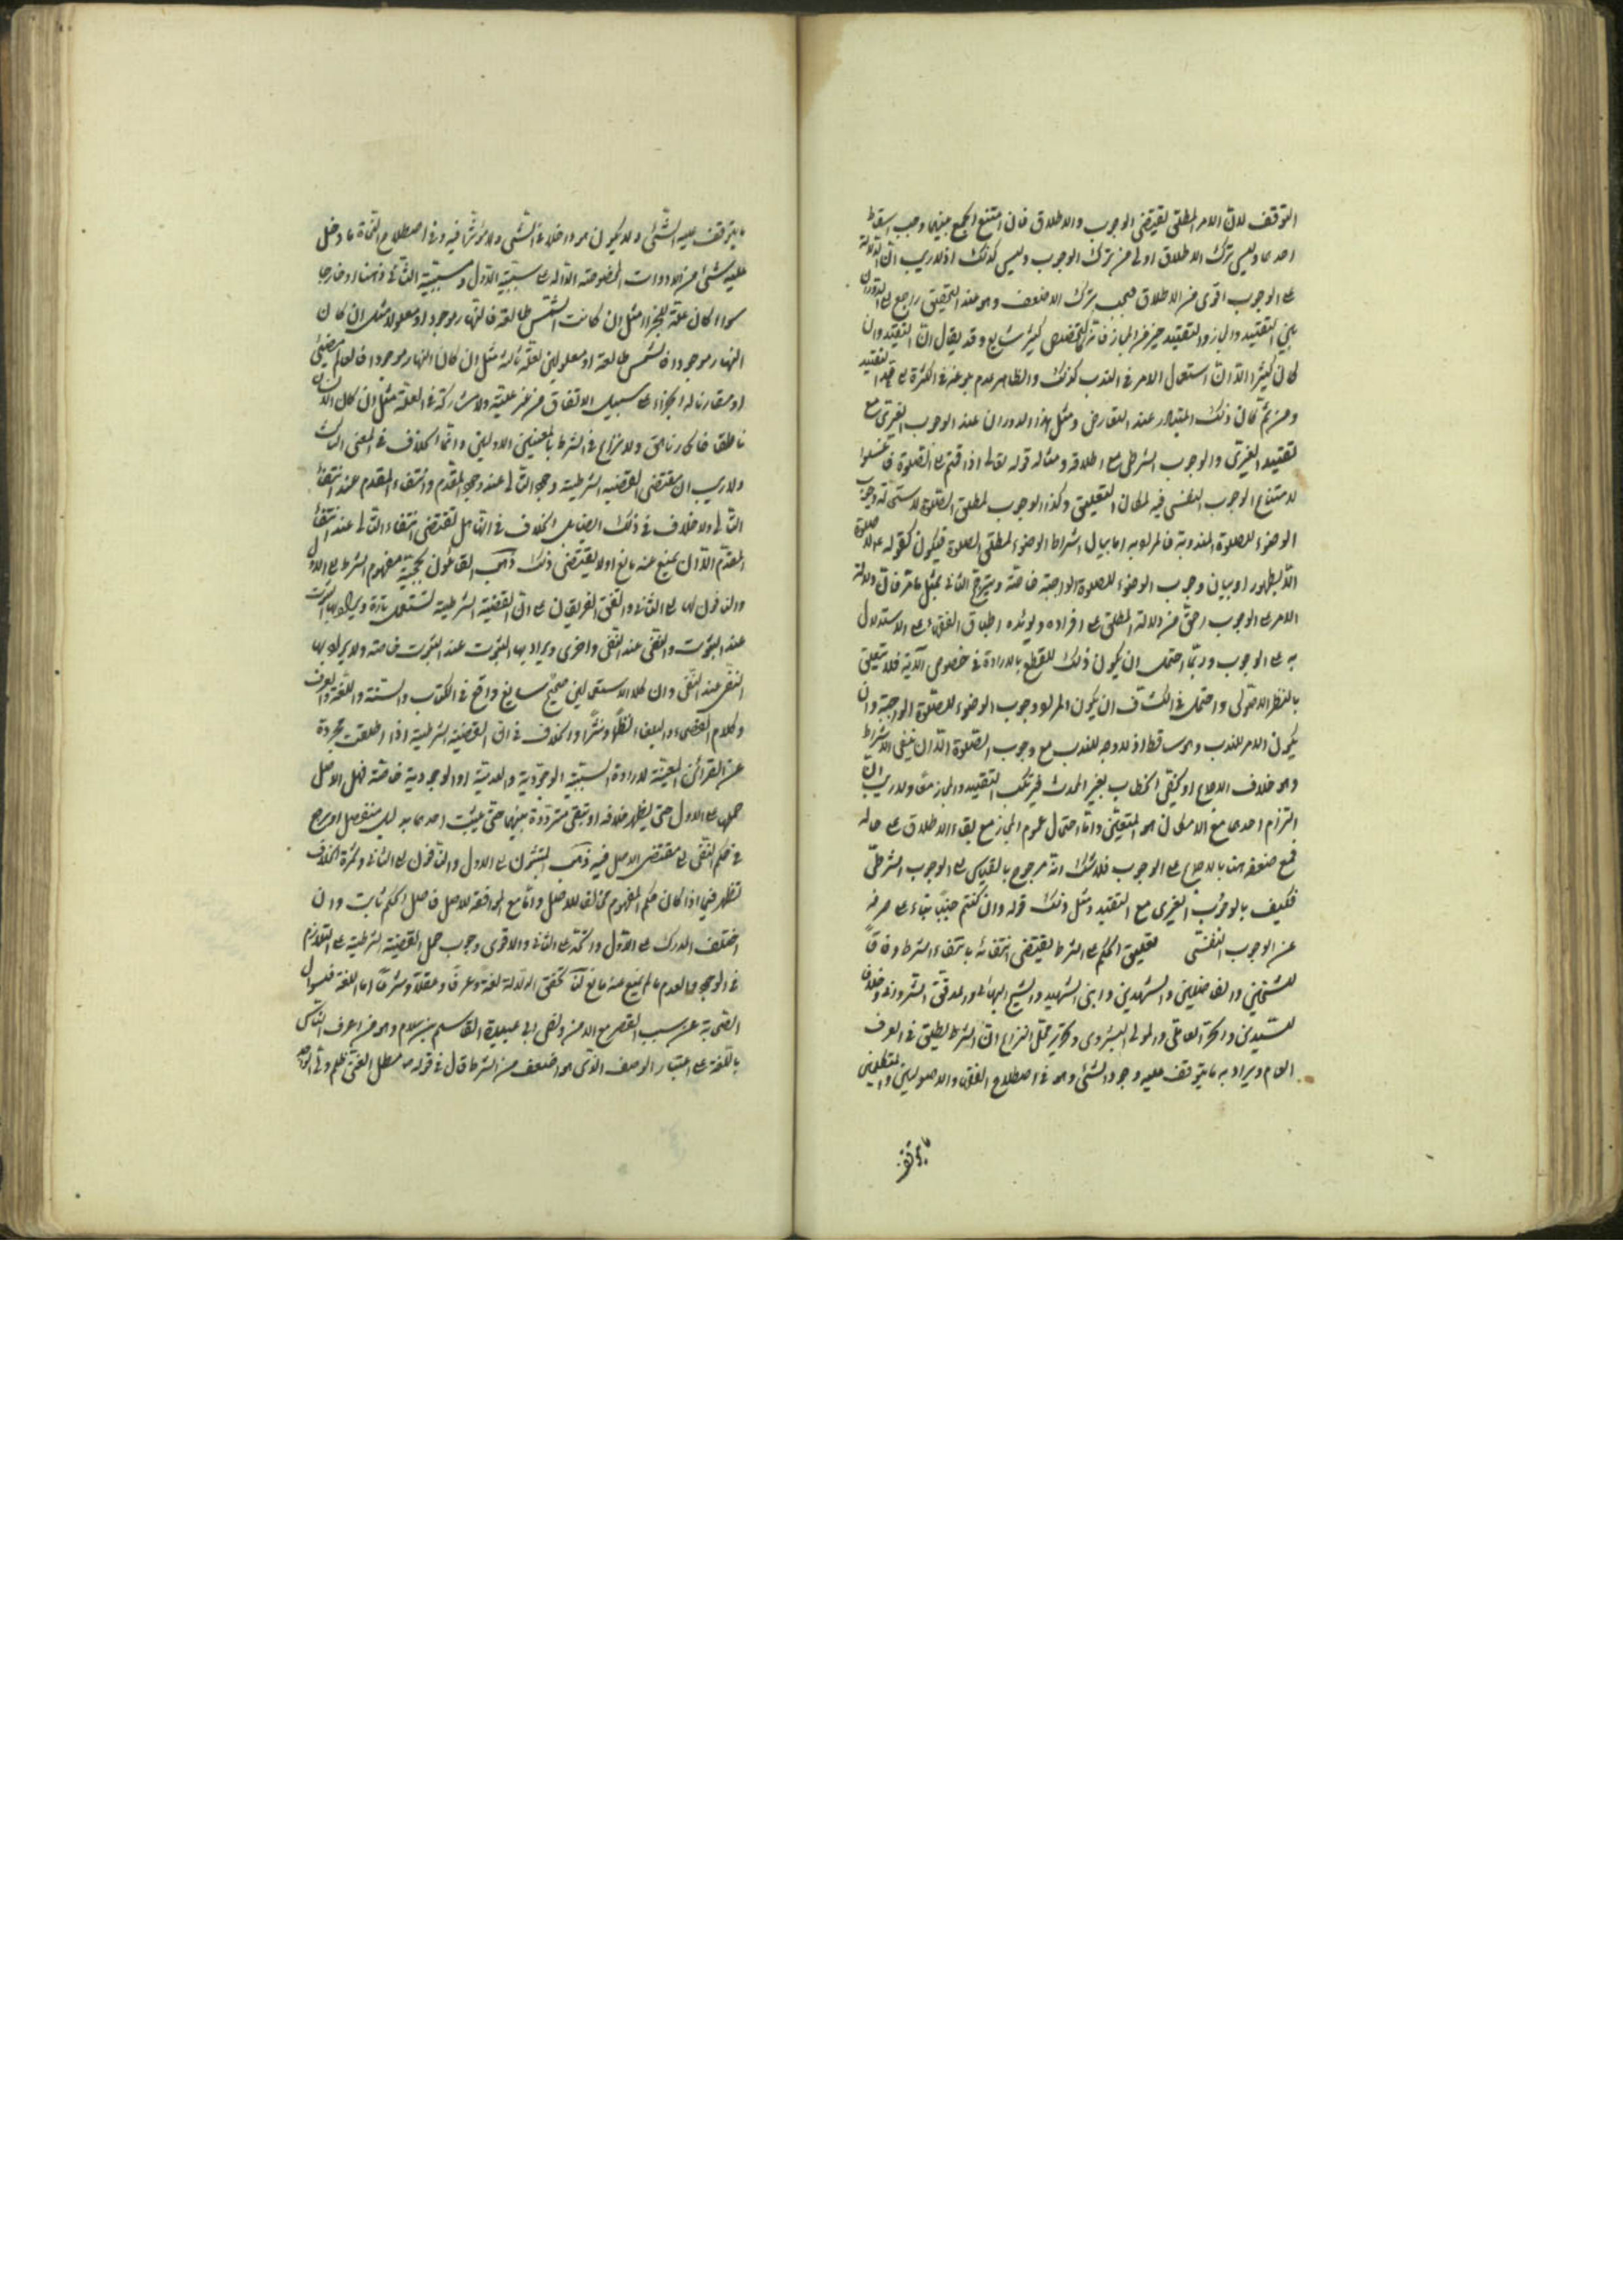 التوقف لان الامر المطلق يقتضى الوجوب والاطلاق فان امتنع الجمع بينهما وجب اسقاط
احدهما وليس ترك الاطلاق اولى من ترك الوجوب وليس كذلك اذ لا ريب ان الدلالة
على الوجوب اقوى من الاطلاق فيجب ترك الاضعف وهو عند التحقيق راجع الى الدوران
بين التقييد والمجاز والتقييد خير من المجاز فانه كثير شايع وقد يقال ان التقييد وان
كان كثيرا الا ان استعمال الامر فى الندب كذلك والظاهر عدم بلوغه فى الكثرة الى حد التقييد
ومن ثم كان ذلك المتبادر عند التعارض ومثل هذا الدوران عند الوجوب الغيرى مع
تقييد الغيرى والوجوب الشرطى مع اطلاقه ومثاله قوله تعالى اذا قمتم الى الصلوة فاغسلوا
لامتناع الوجوب النفسى فيه لمكان التعليق وكذا الوجوب لمطلق الصلوة لاستحالة وجوب
الوضوء للصلوة المندوبة فالمراد به اما بيان اشتراط الوضوء لمطلق الصلوة فيكون كقوله لا صلوة
الا بطهور او بيان وجوب الوضوء للصلوة الواجبة خاصة ويترجح الثانى بمثل ما مر فان دلالة
الامر على الوجوب ارجح من دلالة المطلق على افراده ويؤيده اطباق الفقهاء على الاستدلال
به على الوجوب وربما احتمل ان يكون ذلك للقطع بالارادة فى خصوص الآية فلا يتعلق
بالنظر الاصولى واحتمل فى الكشاف ان يكون المراد وجوب الوضوء للصلوة الواجبة وان
يكون الامر للندب وهو ساقط اذ لا وجه للندب مع وجوب الصلوة الا ان ينفى الاشتراط
وهو خلاف الاجماع او يخص الخطاب بغير المحدث فيرتكب التقييد والمجاز معا ولا ريب ان
التزام احدهما مع الامكان هو المتعين واما احتمال عموم المجاز مع بقاء الاطلاق على حاله
فمع ضعفه هنا بالاجماع على الوجوب فلا شك انه مرجوح بالقياس الى الوجوب الشرطى
فكيف بالوجوب الغيرى مع التقييد ومثل ذلك قوله وان كنتم جنبا بناء على صرفه
عن الوجوب النفسى تعليق الحكم على الشرط يقتضى انتفائه بانتفاء الشرط وفاقا
للشيخين والفاضلين والشهيدين وابن الشهيد والشيخ البهائى والمدقق الشروانى وخلافا
للسيدين والحر العاملى والمولى البشروى وتحرير محل النزاع ان الشرط يطلق فى العرف
العام ويراد به ما يتوقف عليه وجود الشئ وهو فى اصطلاح الفقهاء والاصوليين والمتكلمين
ما يتوقف
ما يتوقف عليه الشئ ولا يكون داخلا فى الشئ ولا مؤثرا فيه وفى اصطلاح النحاة ما دخل
عليه شئ من الادوات المخصوصة الدالة على سببية الاول ومسببية الثانى ذهنا او خارجا
سواء كان علة للجزاء مثل ان كانت الشمس طالعة فالنهار موجود او معلولا مثل ان كان
النهار موجودا فالشمس طالعة او معلولين لعلة ثالثة مثل ان كان النهار موجودا فالعالم مضئ
او مقارنا له الجزاء على سبيل الاتفاق من غير علية ولا مشاركة فى العلة مثل ان كان الانسان
ناطقا فالحمار ناهق ولا نزاع فى الشرط بالمعنيين الاولين وانما الخلاف فى المعنى الثالث
ولا ريب ان مقتضى القضية الشرطية وجود التالى عند وجود المقدم وانتفاء المقدم عند انتفاء
التالى ولا خلاف فى ذلك ايضا بل الخلاف فى انها هل تقتضى انتفاء التالى عند انتفاء
المقدم الا ان يمنع عنه مانع او لا يقتضى ذلك ذهب القائلون بحجية مفهوم الشرط الى الاول
والنافون لها الى الثانى واتفق الفريقان على ان القضية الشرطية تستعمل تارة ويراد بها الثبوت
عند الثبوت والنفى عند النفى واخرى ويراد بها الثبوت عند الثبوت خاصة ولا يراد بها
النفى عند النفى وان كلا الاستعمالين صحيح سايغ واقع فى الكتاب والسنة واللغة والعرف
وكلام الفصحاء والبلغاء نظما ونثرا والخلاف فى ان القضية الشرطية اذا اطلقت مجردة
عن القرائن المعينة لارادة السببية الوجودية والعدمية او الوجودية خاصة فهل الاصل
حملها على الاول حتى يظهر خلافه او تبقى مترددة بينهما حتى يثبت احدهما بدليل منفصل او يرجع
فى حكم النفى الى مقتضى الاصل فيه ذهب المثبتون الى الاول والنافون الى الثانى وثمرة الخلاف
تظهر فيما اذا كان حكم المفهوم مخالفا للاصل واما مع الموافقة للاصل فاصل الحكم ثابت وان
اختلف المدرك على الاول واتحد على الثانى والاقوى وجوب حمل القضية الشرطية على التلازم
فى الوجود والعدم ما لم يمنع منه مانع لنا تحقق الدلالة لغة وعرفا وعقلا وشرعا اما اللغة فلسؤال
الصحابة عن سبب القصر مع الامن ولفهم ابى عبيدة القاسم بن سلام وهو من اعرف الناس
باللغة على اعتبار الوصف الذى هو اضعف من الشرط قال فى قوله مطل الغنى ظلم ولى الواجد